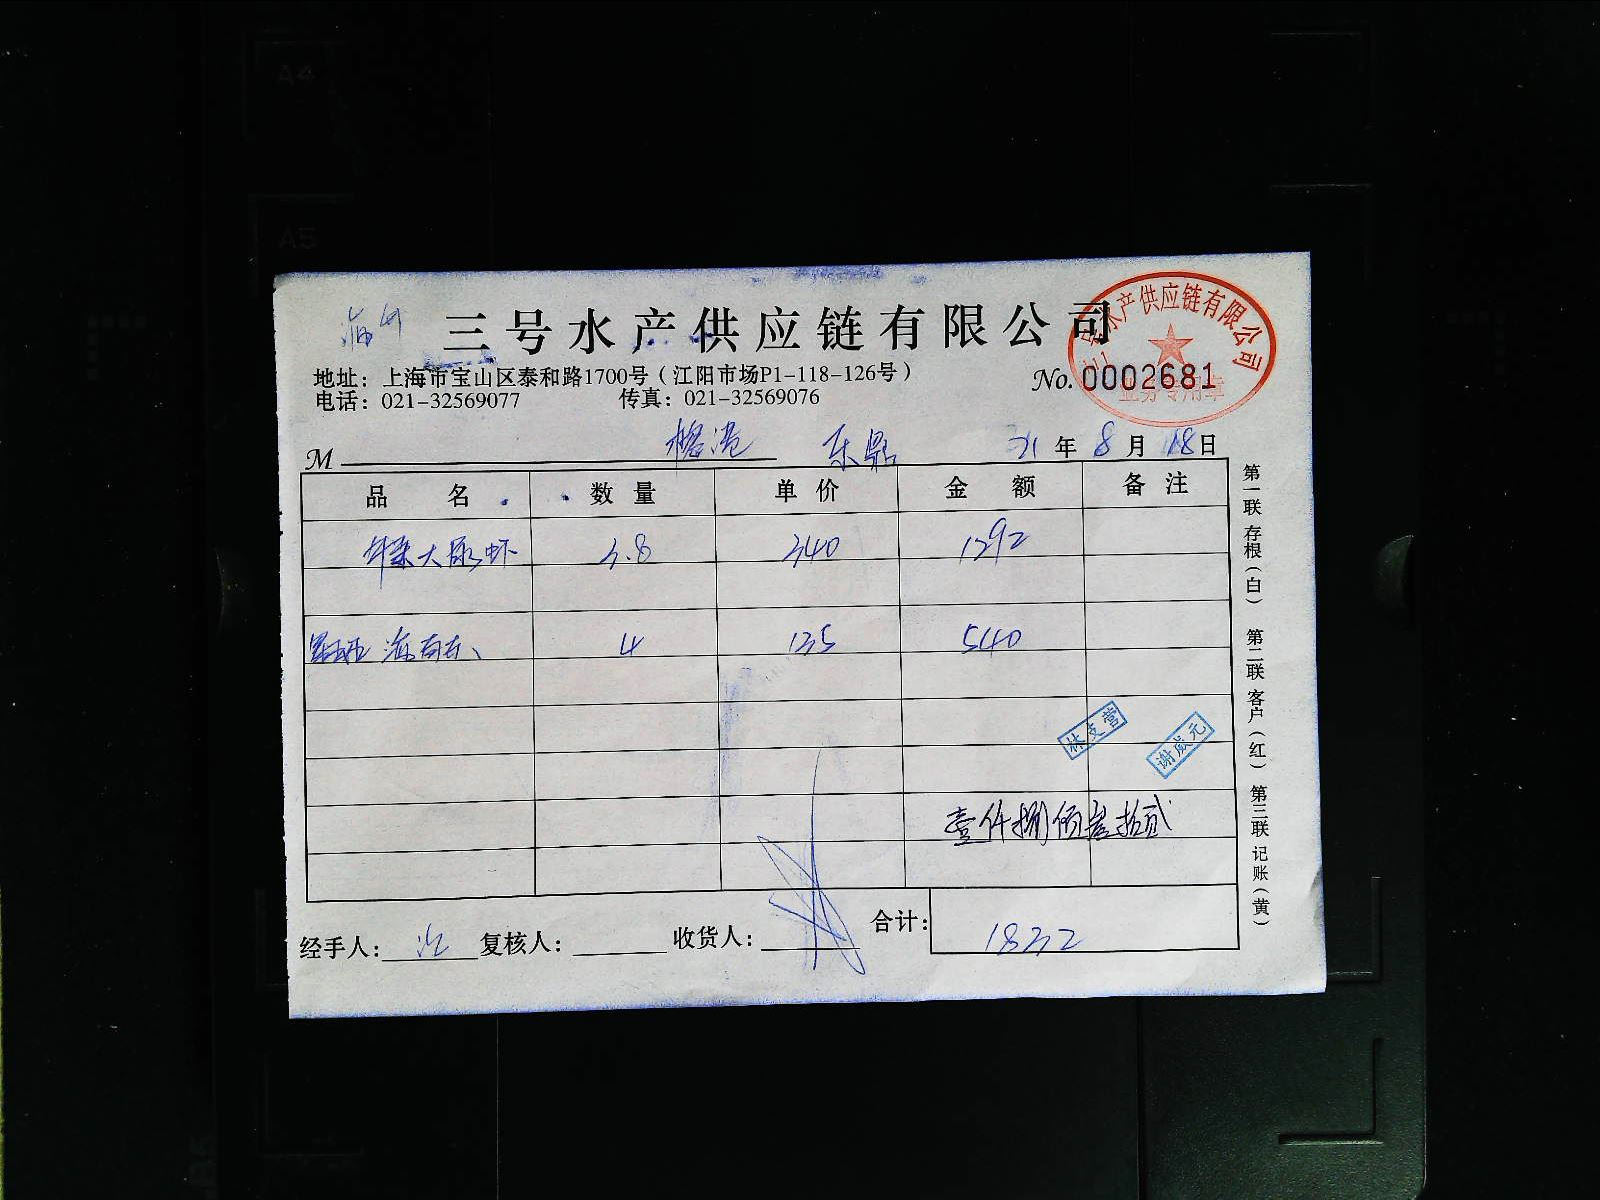 三号水产供应链有限公司
地址：上海市宝山区泰和路1700号（江阳市场P1-118-126号）
电话：021-32569077 传真：021-32569076
No. 0002681
水产供应链有限公司
业务专用章
M 东鼎 21年8月18日
品名 数量 单价 金额 备注
大 虾 3.8 340 1292
海 4 135 540
林支营
谢成元
壹仟捌佰叁拾贰
经手人： 复核人： 收货人： 合计：1832
第一联 存根（白） 第二联 客户（红） 第三联 记账（黄）
A4
A5